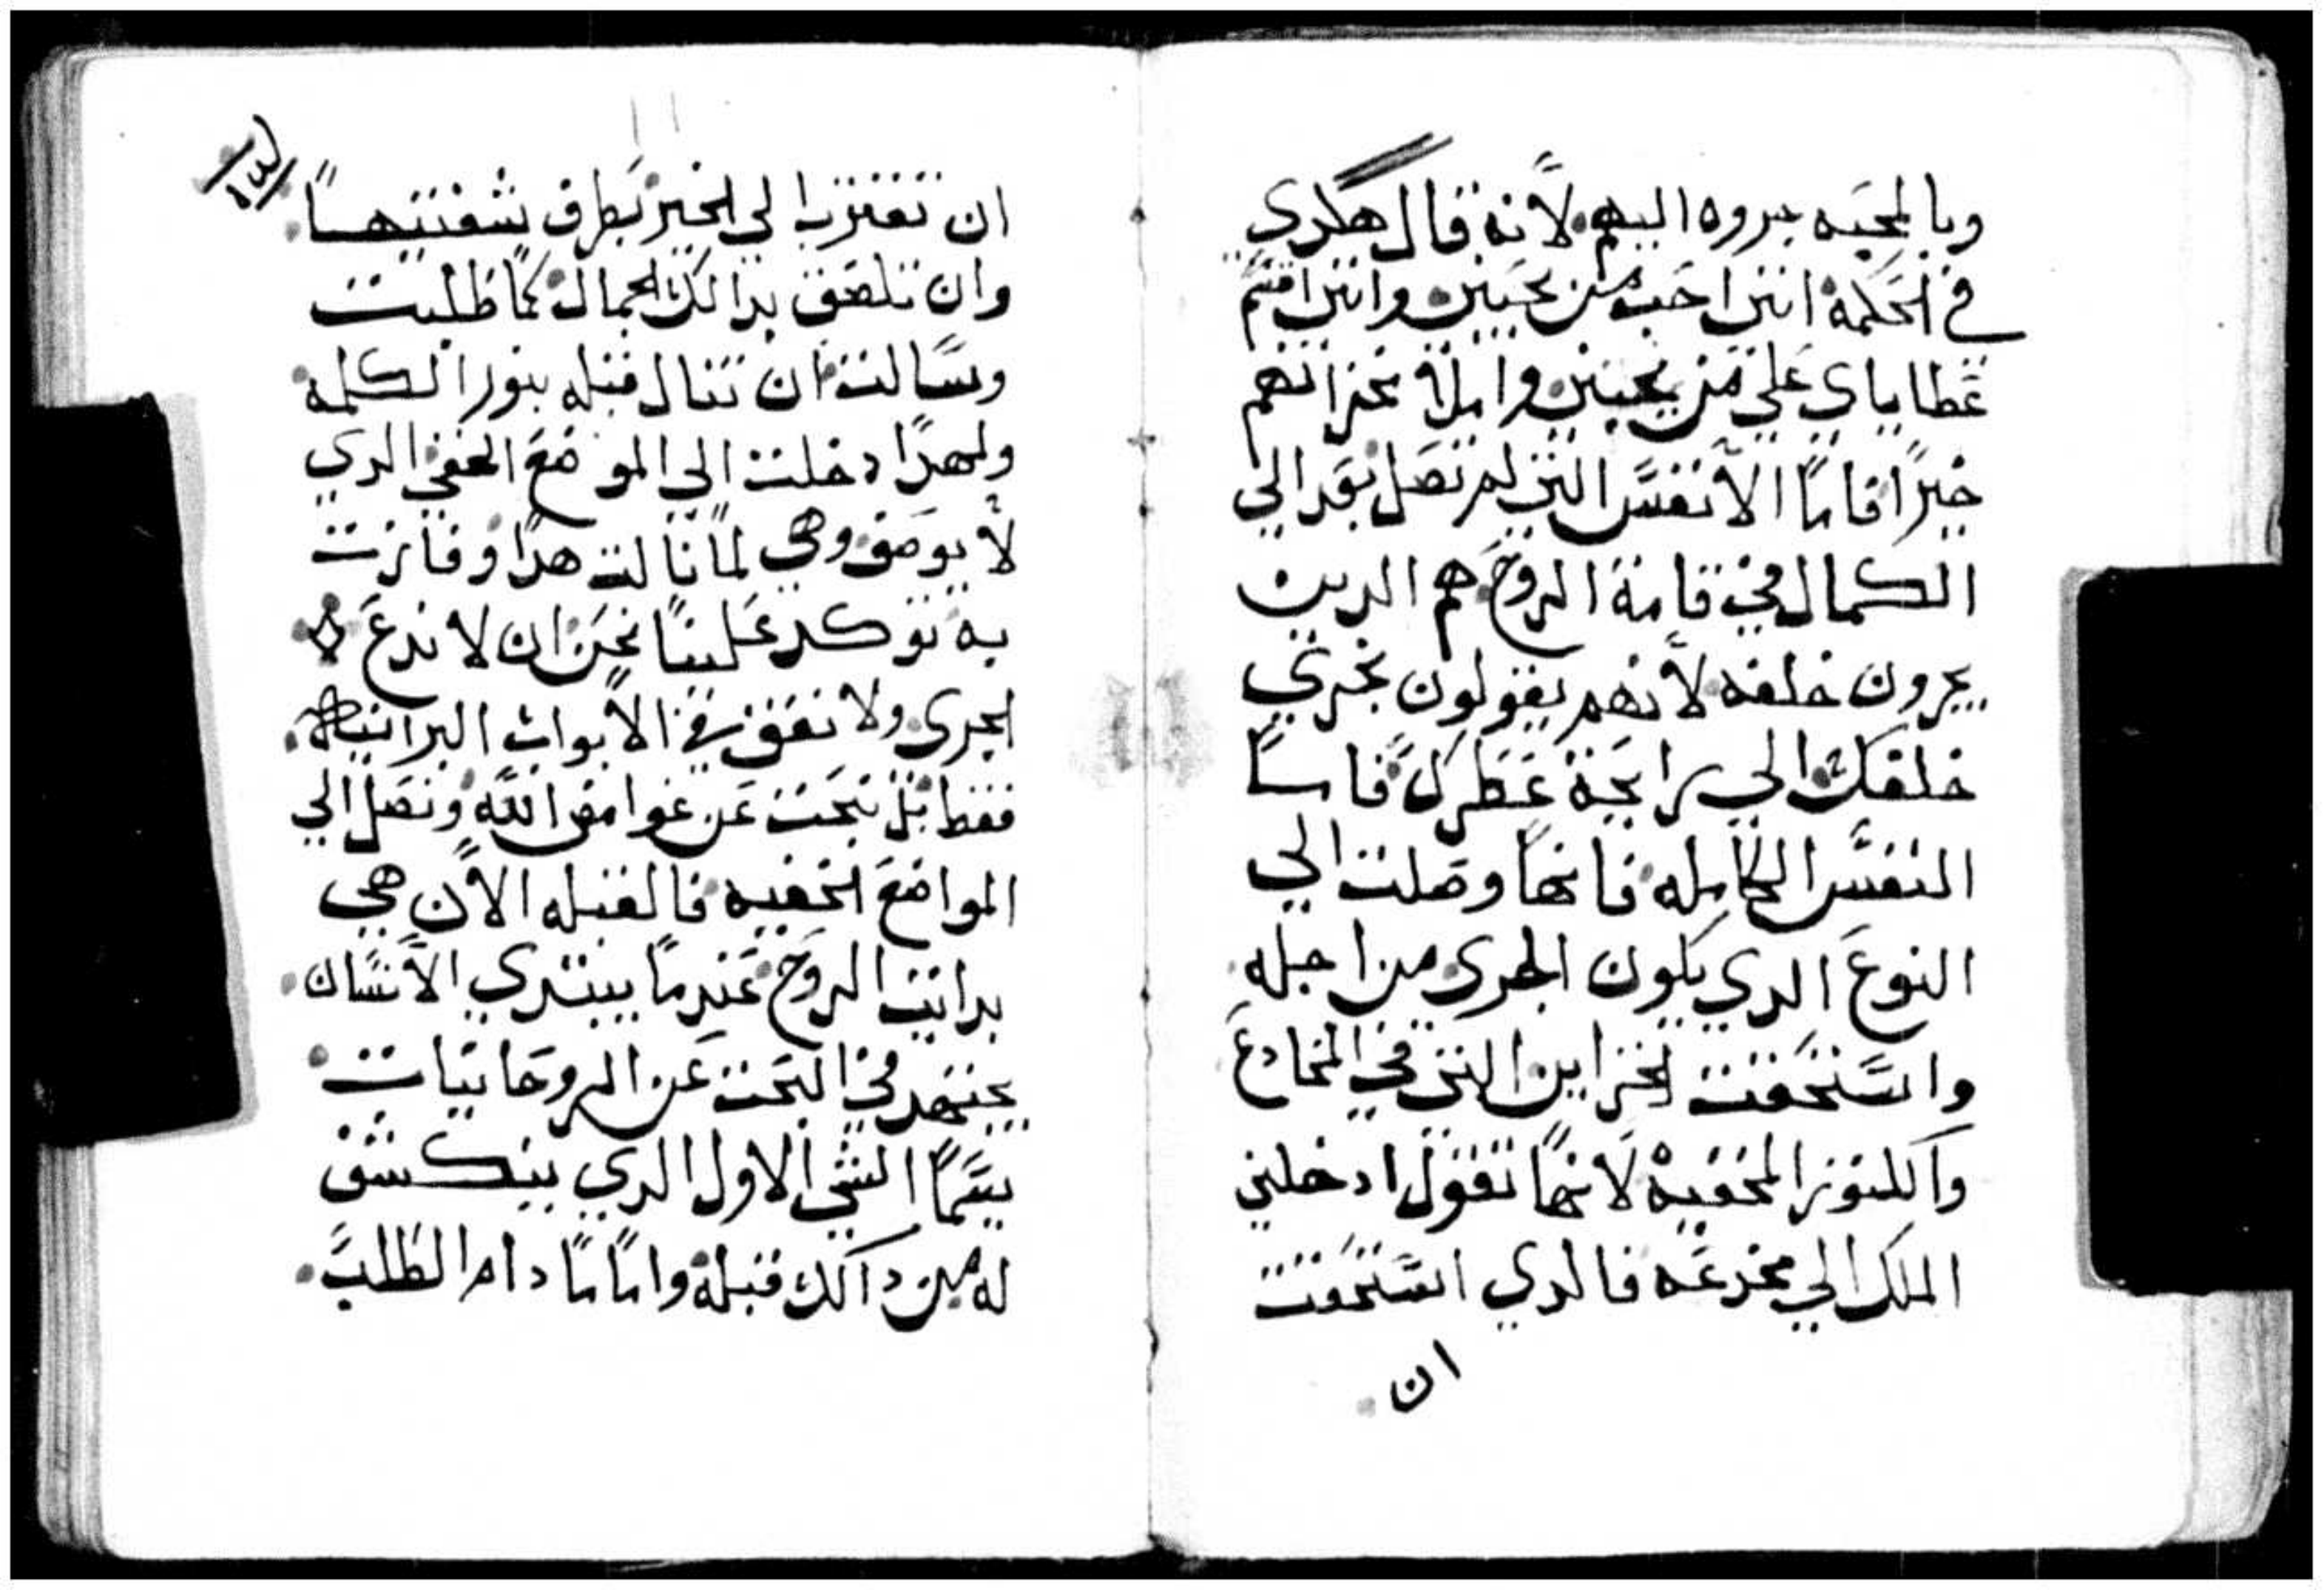 وبالمحبه جروه اليهم لأنه قال هكدي
في الحكمة انني احب من يحبني وانني اقسم
عطاياي علي من يحبني واملأ خزانهم
خيرًا فامًا الأنفس التي لم تصل بعد الي
الكمال في قامة الروح هم الدين
يجرون خلفه لأنهم يقولون نجري
خلفك الي رايحة عطرك فاماً
النفس الكامله فانها وصلت الي
النوع الدي يكون الجري من اجله
واستحقت لخزاين التي في المخادع
والكنوز المخفيه لأنها تقول ادخلني
الملك الي مخدعه فالدي استحقت
ان
ان تقترب الي الخير بطرف شفتيها
وان تلصق بدالك الجمال كما طلبت
وسالت ان تنال قبله بنور الكلمة
ولهدا دخلت الي الموضع الخفي الدي
لأ يوصف وهي لما نالت هدا وفازت
به توكد علينا نحن ان لا ندع
الجري ولا نقف في الأبواب البرانيه
فقط بل نبحث عن غوامض الله ونصل الي
المواضع الخفيه فالقبله الأن هي
بدايت الروح عندما يبتدي الأنسان
يجتهد في البحث عن الروحانيات
يسما الشي الاول الدي ينكشف
له من داك قبلة واما ما دام الطلب